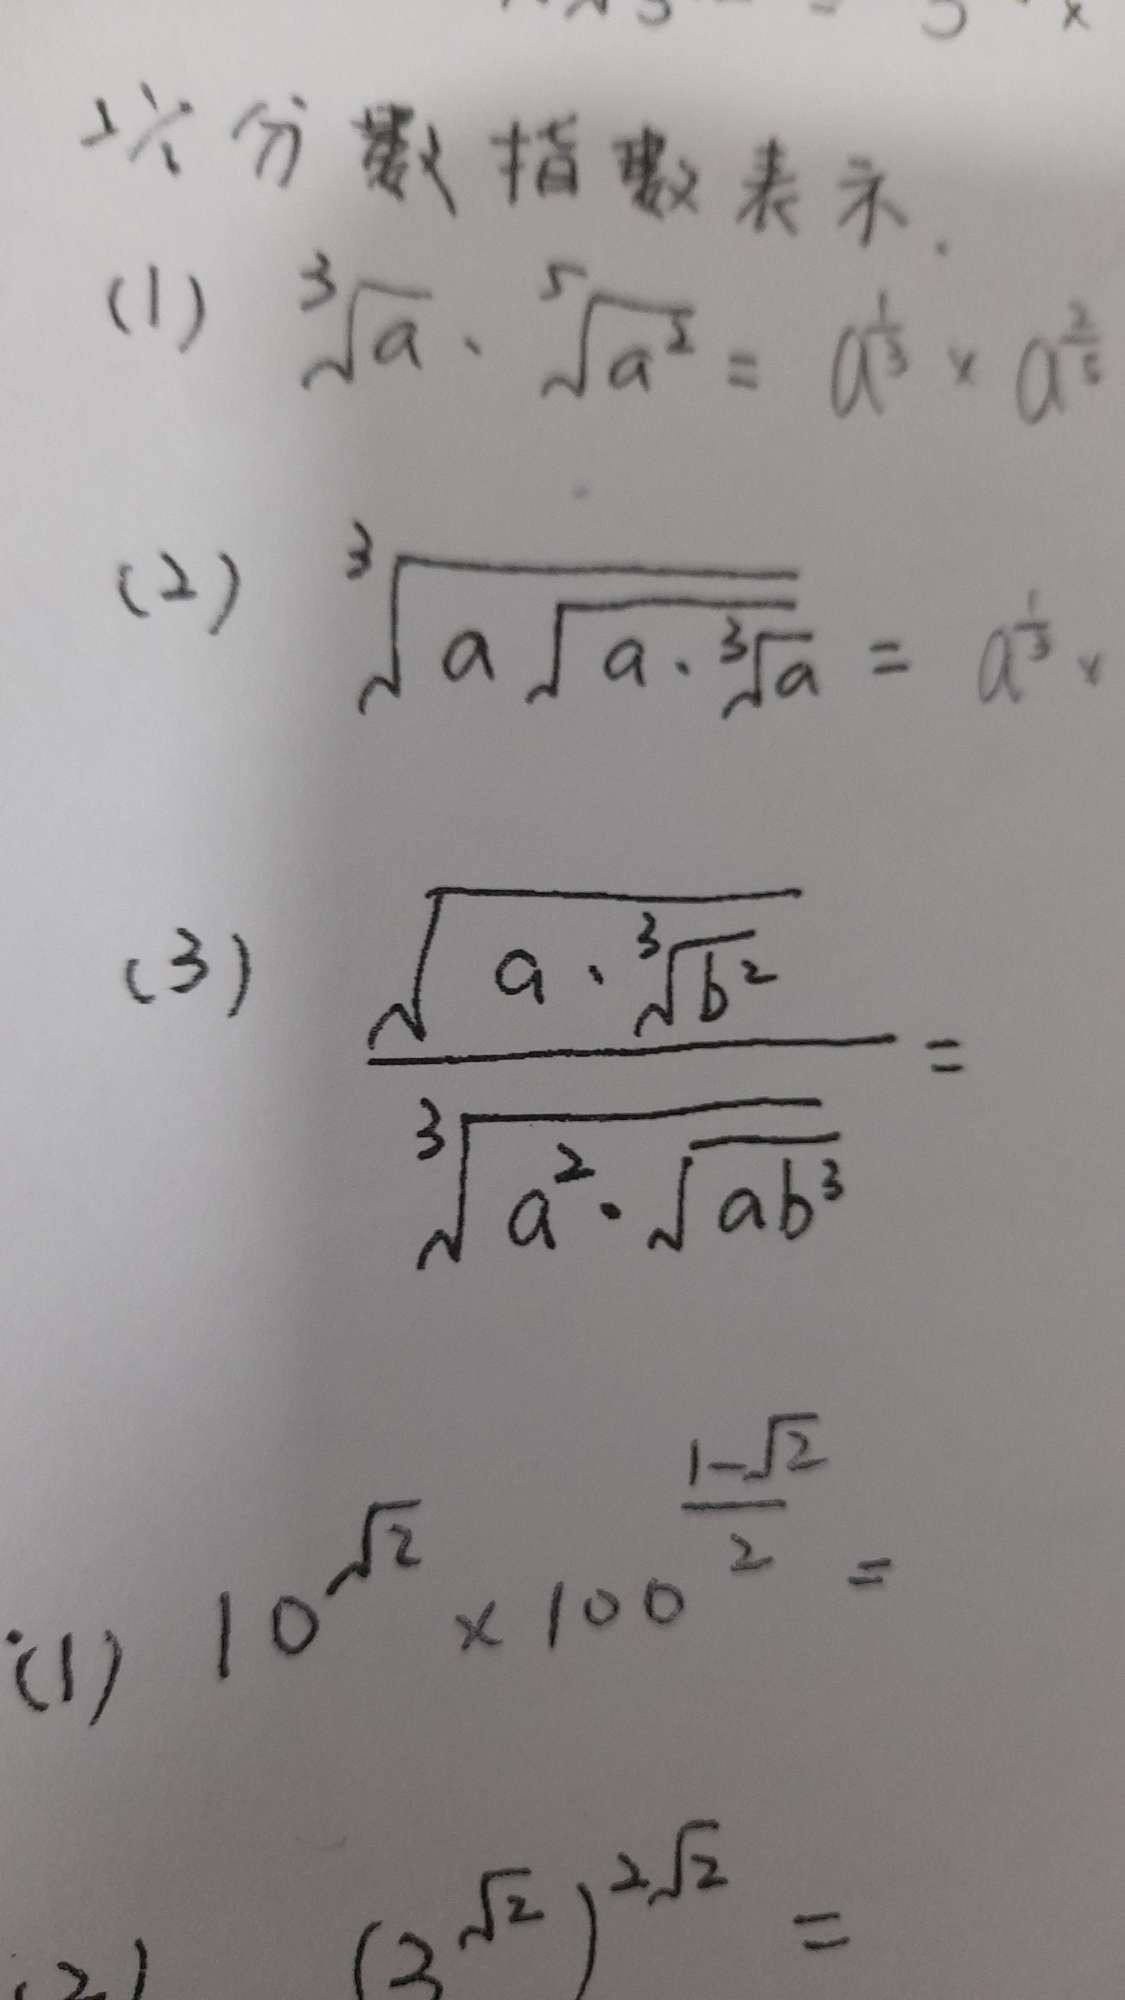 以分数指数表示.
(1) ∛a · ⁵√a² = a^{1/3} × a^{2/5}
(2) ∛(a√(a · ∛a)) = a^{1/3} ×
(3) √(a · ∛b²) / ∛(a² · √(ab³)) =
(1) 10^{√2} × 100^{(1-√2)/2} =
(2) (3^{√2})^{2√2} =